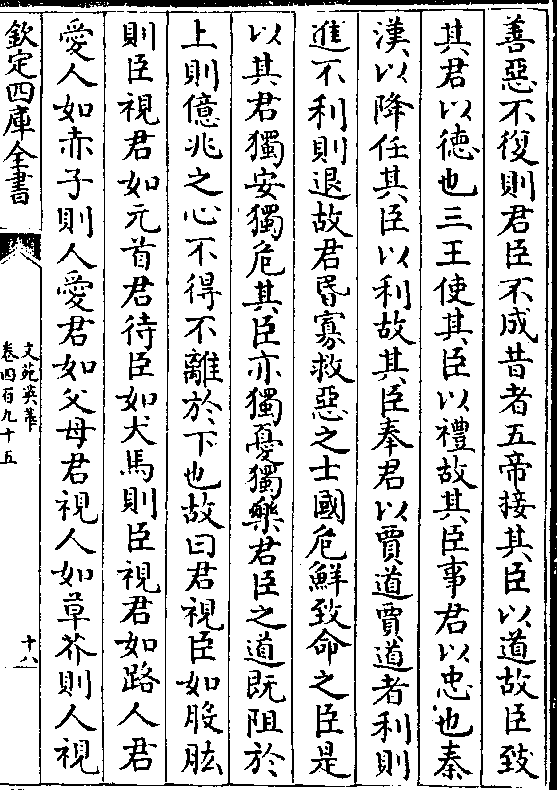 善惡不復則君臣不成昔者五帝接其臣以道故臣致
其君以德也三王使其臣以禮故其臣事君以忠也秦
漢以降任其臣以利故其臣奉君以賈道賈道者利則
進不利則退故君昬寡救惡之士國危鮮致命之臣是
以其君獨安獨危其臣亦獨憂獨樂君臣之道既阻於
上則億兆之心不得不離於下也故曰君視臣如股肱
則臣視君如元首君待臣如犬馬則臣視君如路人君
愛人如赤子則人愛君如父母君視人如草芥則人視
欽定四庫全書
文苑英華
卷四百九十五
十八